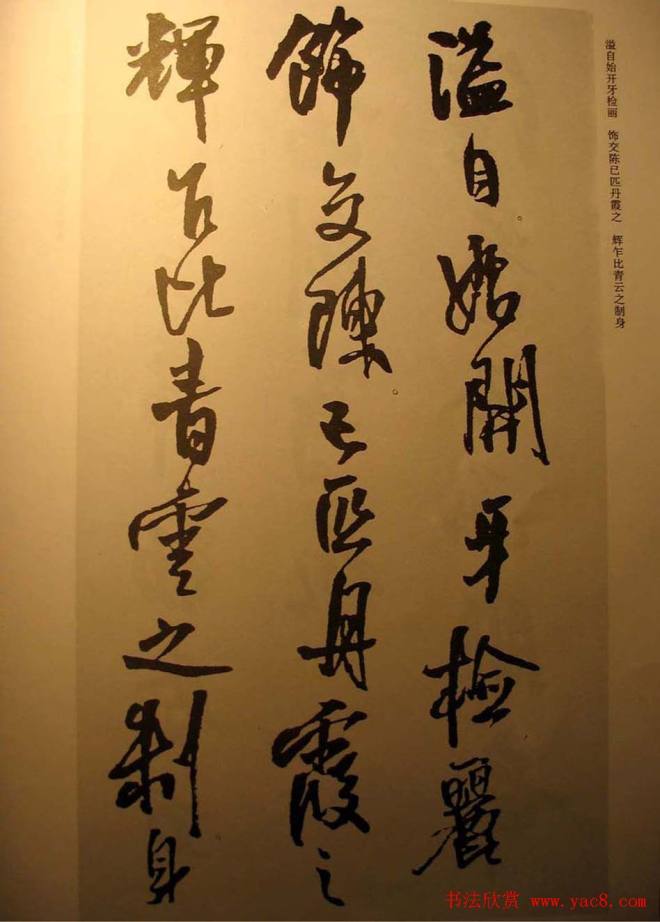 溢自始開牙檢麗
飾交陳已匹丹霞之
輝乍比青雲之制身
溢自始开牙检丽　饰交陈已匹丹霞之　辉乍比青云之制身
书法欣赏 www.yac8.com